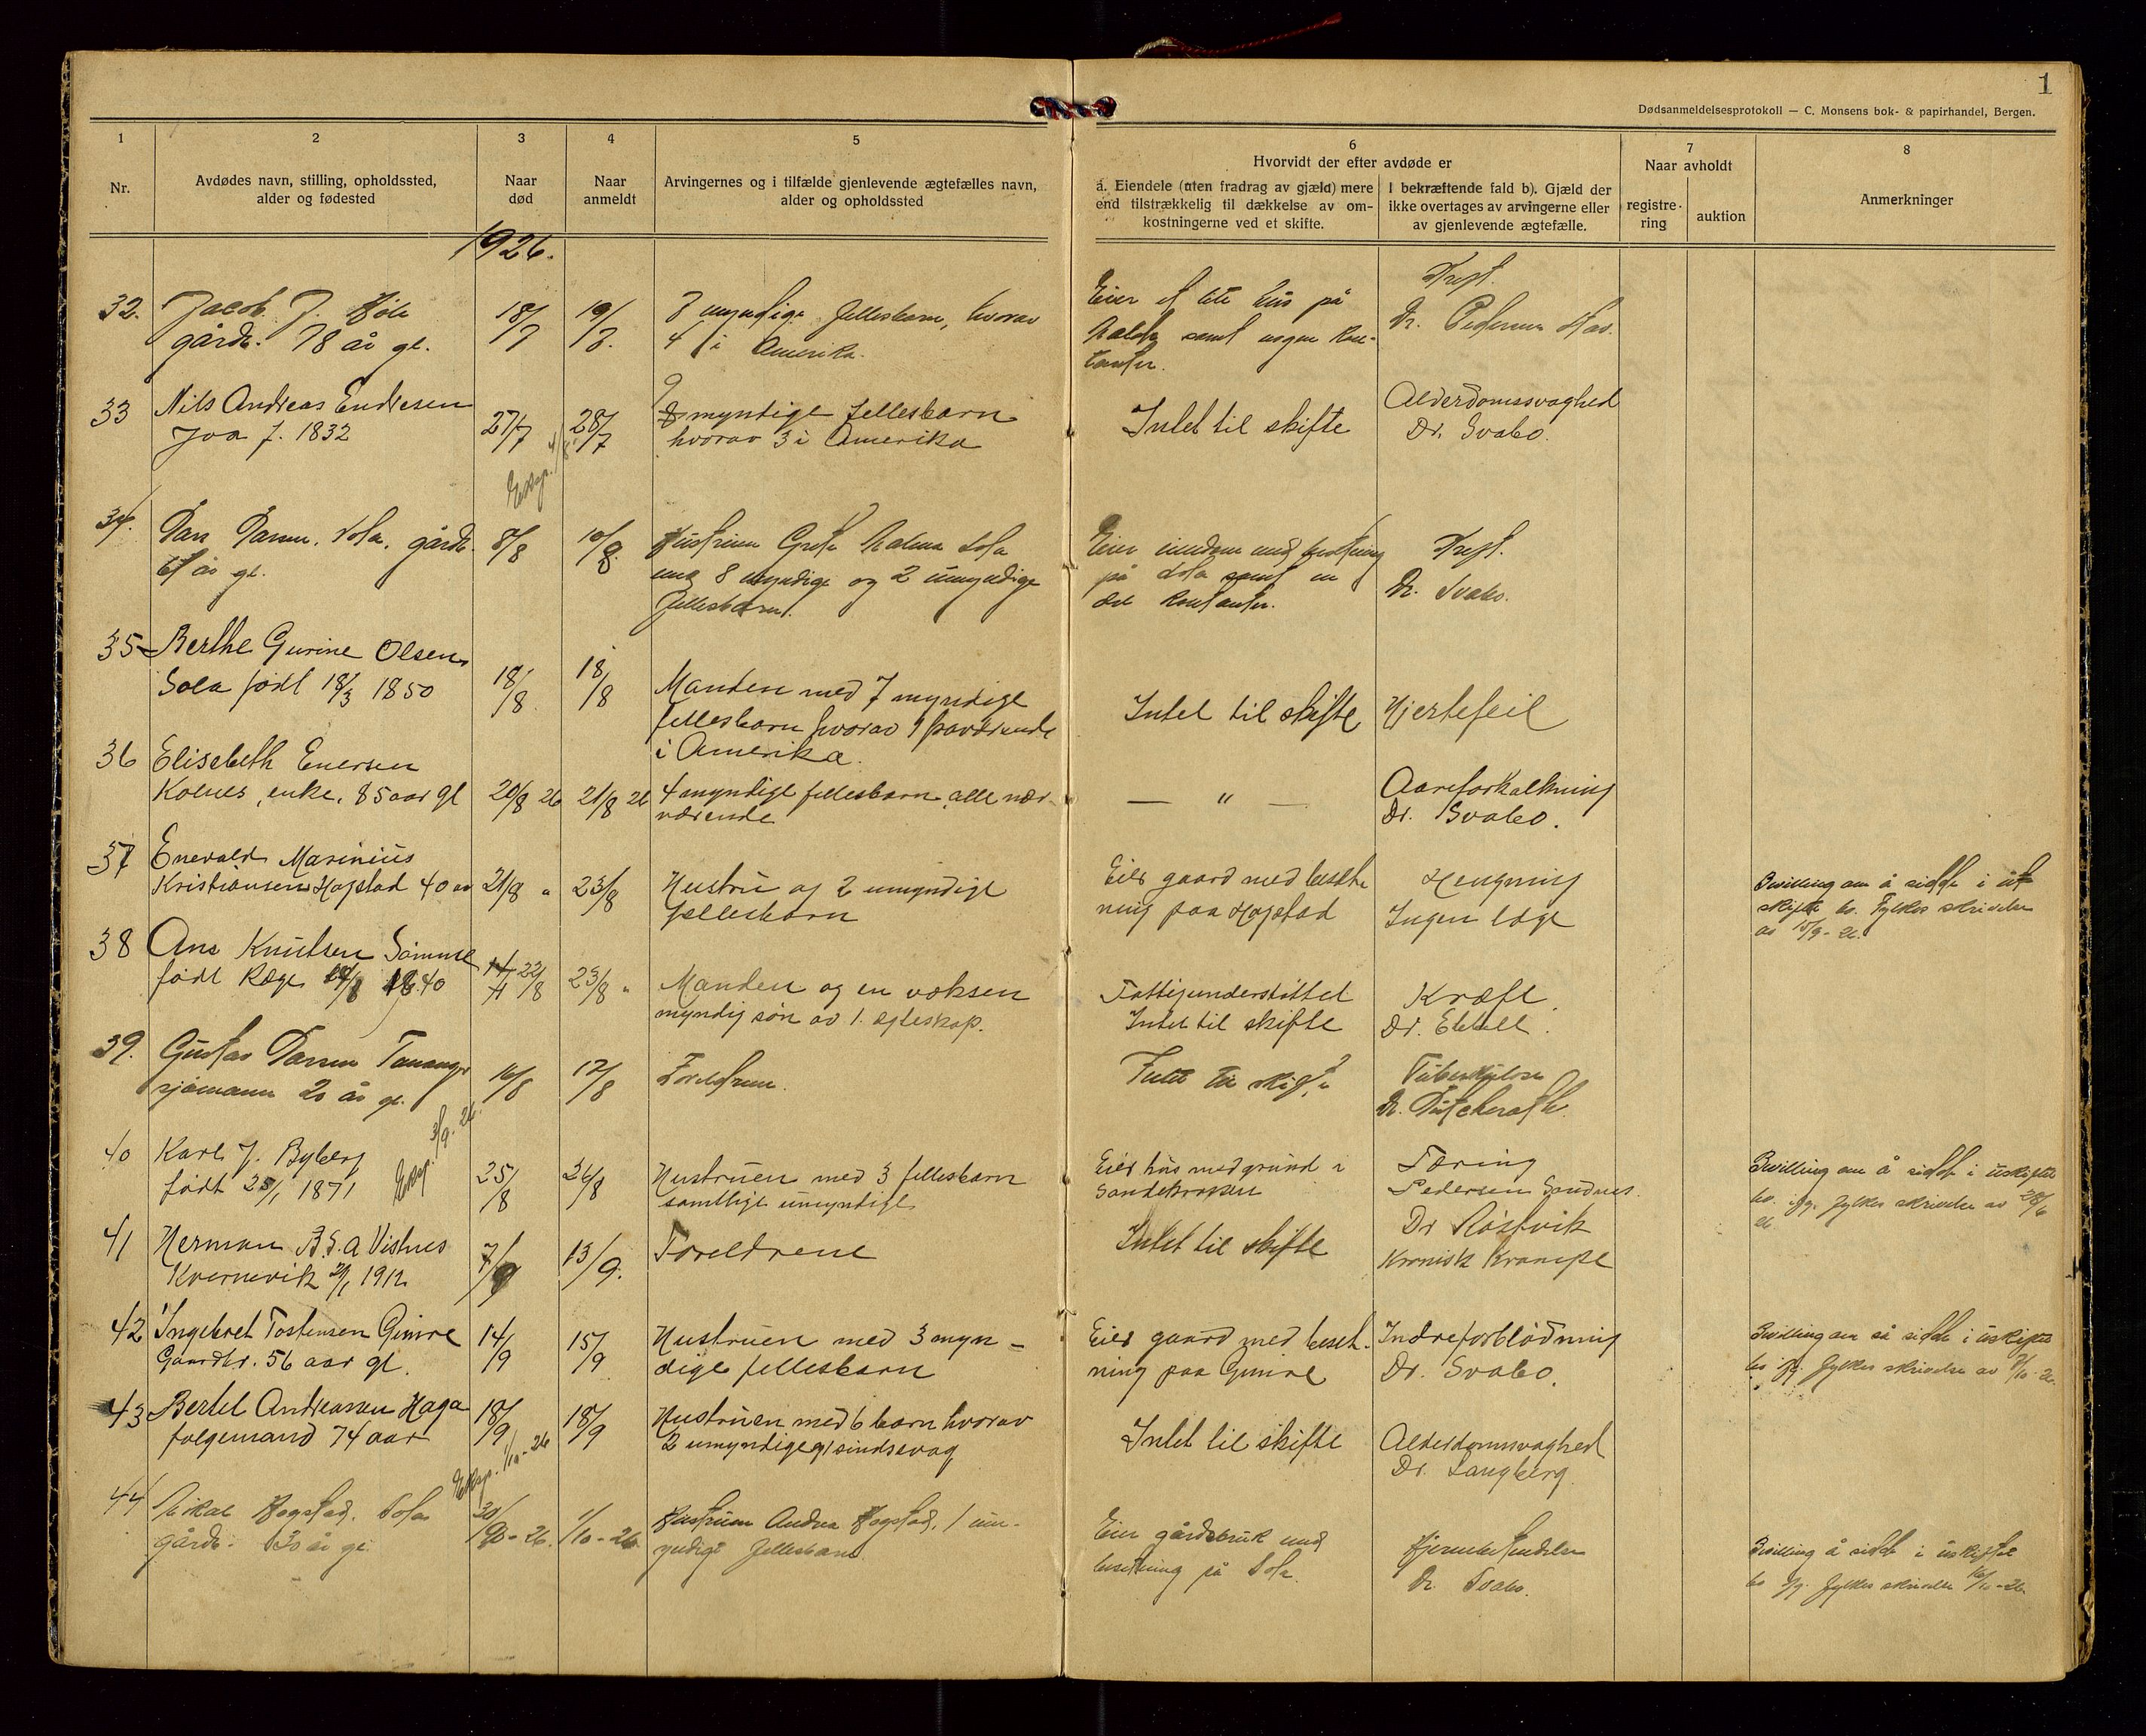 1
Dødsanmeldelsesprotokoll — C. Monsens bok- & papirhandel, Bergen.
1
Nr.
2
Avdødes navn, stilling, opholdssted,
alder og fødested
3
Naar
død
4
Naar
anmeldt
5
Arvingernes og i tilfælde gjenlevende ægtefælles navn,
alder og opholdssted
6
Hvorvidt der efter avdøde er
a. Eiendele (uten fradrag av gjæld) mere
end tilstrækkelig til dækkelse av om-
kostningerne ved et skifte.
I bekræftende fald b). Gjæld der
ikke overtages av arvingerne eller
av gjenlevende ægtefælle.
7
Naar avholdt
registre-
ring
auktion
8
Anmerkninger
1926.
32.
Jacob J.
gårdb. 78 år gl.
18/7
19/7.
7 myndige fellesbarn, hvorav
4 i Amerika.
Eier et lite hus på
samt nogen kon-
tanter.
Kreft.
Dr. Pedersen
33
Nils Andreas Endresen
Joa f. 1832
27/7
28/7
9
8 myndige fellesbarn
hvorav 3 i Amerika
Intet til skifte
Alderdomssvaghed
Dr. Svabo.
Eksp. 4/8
34.
Lars Larsen. Sola. gårdb.
år gl.
8/8
10/8.
Hustruen Grete Malena Sola
med 8 myndige og 2 umyndige
fellesbarn.
Eier eiendom med besetning
på Sola samt en
del kontanter.
Kreft.
Dr. Svabo.
35
Berthe Gurine Olsen
Sola født 18/3 1850
18/8.
18/8
Manden med 7 myndige
fellesbarn hvorav 1 fraværende
i Amerika.
Intet til skifte
Hjertefeil
36
Elisebeth Enersen
Kolnes, enke, 85 aar gl
20/8 26
21/8 26
4 myndige fellesbarn alle nær-
værende
— " —
Aareforkalkning
Dr. Svabo.
37
Enevald Marinius
Kristiansen Hogstad 40 aar
21/8 "
23/8
Hustru og 2 umyndige
fellesbarn
Eier gaard med beset-
ning paa Hogstad
Hengning
Ingen læge
Bevilling om å sidde i ut
skiftet bo. Fylkes skrivelse
av 15/9-26.
38
Ane Knutsen Sømme
født Ræge 1840
22/8
23/8 "
Manden og en voksen
myndig søn av 1. egteskap.
Fattigunderstøttet
Intet til skifte
Kræft.
Dr. Ebbell.
39.
Gustav Larsen Tananger
sjømann 20 år gl.
16/8
17/8
Foreldrene.
Intet til skifte
Tuberkulose
Dr.
40
Karl J. Byberg
født 25/1 1871
Eksp. 3/9. 26.
25/8
26/8
Hustruen med 3 fellesbarn
samtlige umyndige
Eier hus med grund i
Sandekroken
Tæring
Pedersen Sandnes.
Bevilling om å sidde i uskiftet
bo. ifg. fylkes skrivelse av
26.
41
Herman B.S.a Vistnes
Kvernevik 1912
7/9
13/9.
Foreldrene
Intet til skifte
Dr Røstvik
Kronisk Krampe
42
Ingebret Tostensen Gimre
Gaardbr. 56 aar gl.
14/9
15/9
Hustruen med 3 myn-
dige fellesbarn
Eier gaard med beset-
ning paa Gimre
Indreforblødning
Dr. Svabo.
Bevilling om så sidde i uskiftet
bo ifg. fylkes skrivelse av
43
Bertel Andreassen Haga
følgemand 74 aar
18/9
18/9
Hustruen med 6 barn hvorav
2 umyndige og sindsvag
Intet til skifte
Alderdomsvaghed
Dr. Langberg.
Eksp. 1/10-26
44
Mikal Hogstad. Sola
gårdb. 30 år gl.
30/9-26.
1/10-26.
Hustruen Andrea Hogstad, 1 um-
yndige fellesbarn.
Eier gårdsbruk med
besetning på Sola.
Dr. Svabo.
Bevilling å sidde i uskiftet
bo ifg. fylkes skrivelse